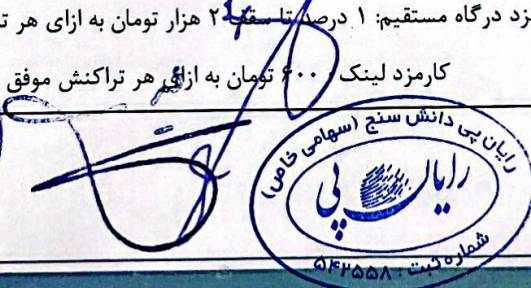 زد درگاه مستقیم: ۱ درصد تا سقف ۲ هزار تومان به ازای هر ترا
کارمزد لینک ۶۰۰ تومان به ازای هر تراکنش موفق
رایان پی دانش سنج (سهامی خاص)
رایان پی
شماره ثبت: ۵۴۲۵۵۸